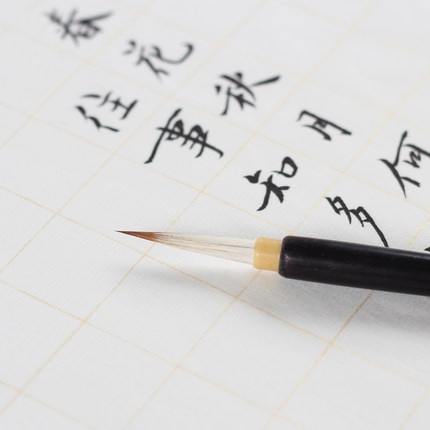 春花秋月何
往事知多